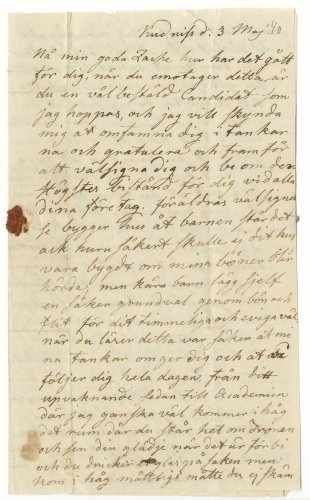 d. 3 Maj 40
Nå min goda Zacke hur har det gått
för dig, när du emotager detta, är
du en väl bestäld Candidat som
jag hoppas, och jag vill skynda
mig at omfamna dig i tankar
na och gratulera och framför
allt välsigna dig och be om den
Högstes bistånd för dig vid alla
dina företag, föräldrars välsignel
se bygger hus åt barnen står det
ack huru säkert skulle ej dit hus
vara bygdt om mina böner blir
hörda, men kära barn lägg sjelf
en säker grundval genom bön och
flit för dit timmeliga och eviga väl
när du läser detta var säker at mi
na tankar omger dig och at de
följer dig hela dagen, från ditt
upvaknande sedan till Academien
där jag ganska väl kommer i håg
det rum där du står het om öronen
och sen din glädje när det är förbi
och du dricker glas på saken men
kom i håg måttligt måtte du ej skäm